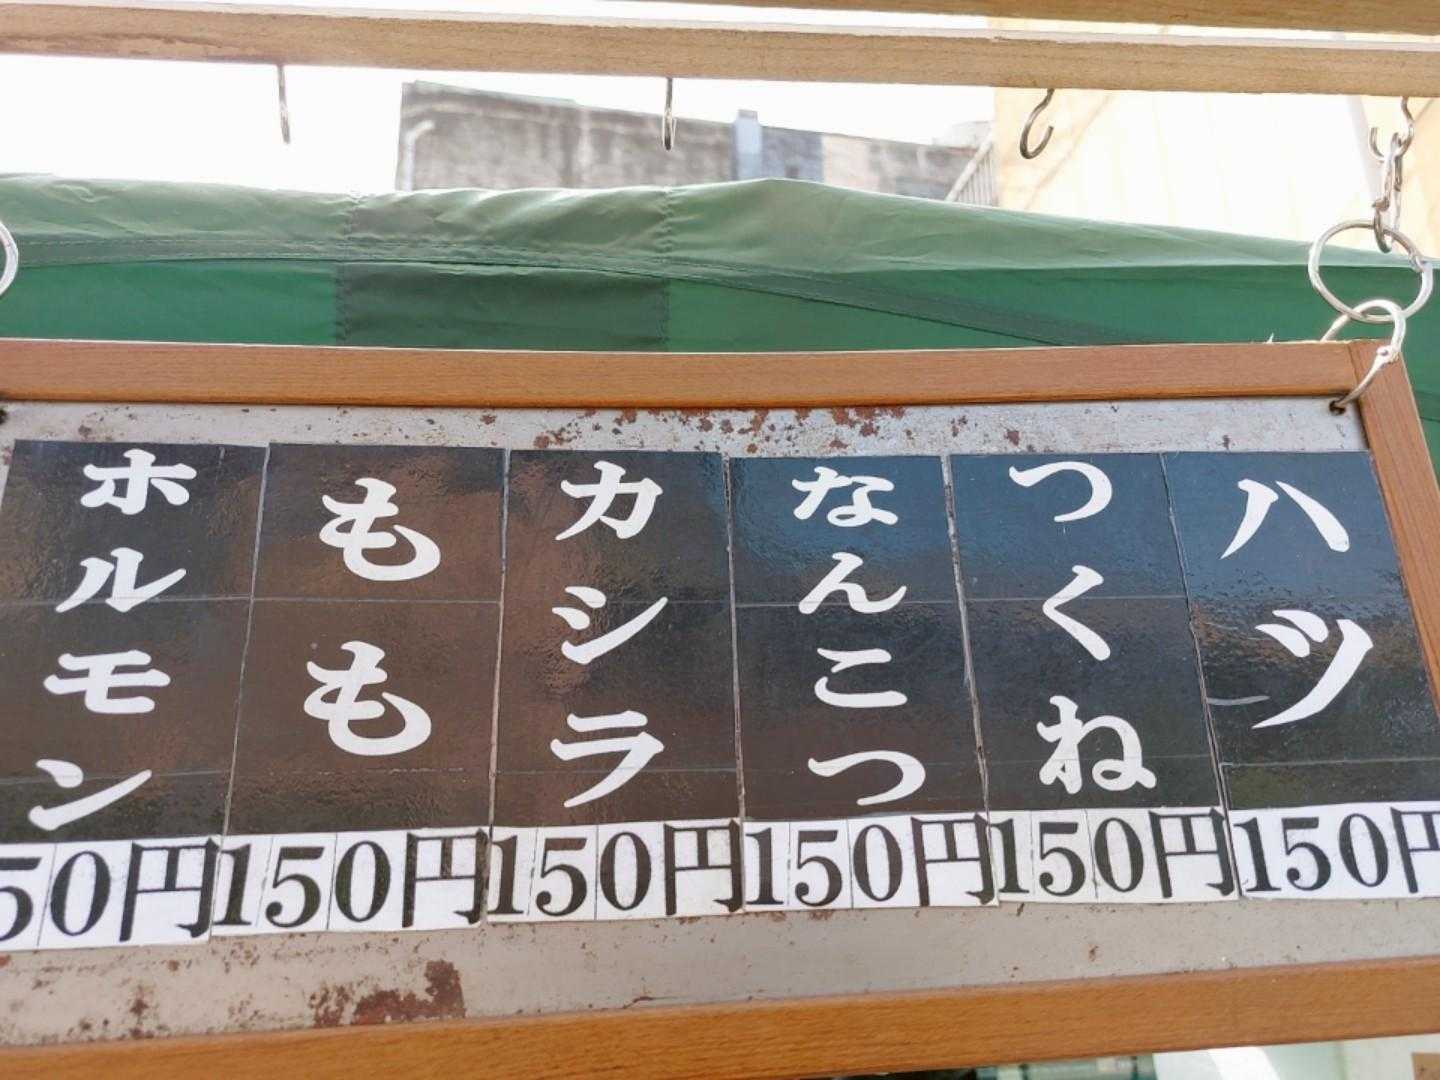 ハツ
150円
つくね
150円
なんこつ
150円
カシラ
150円
もも
150円
ホルモン
50円